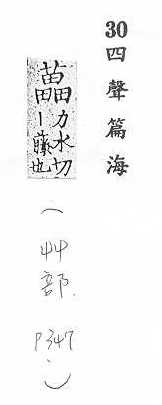 30四聲篇海
力水切
丨藤也
(艸部 P347.)